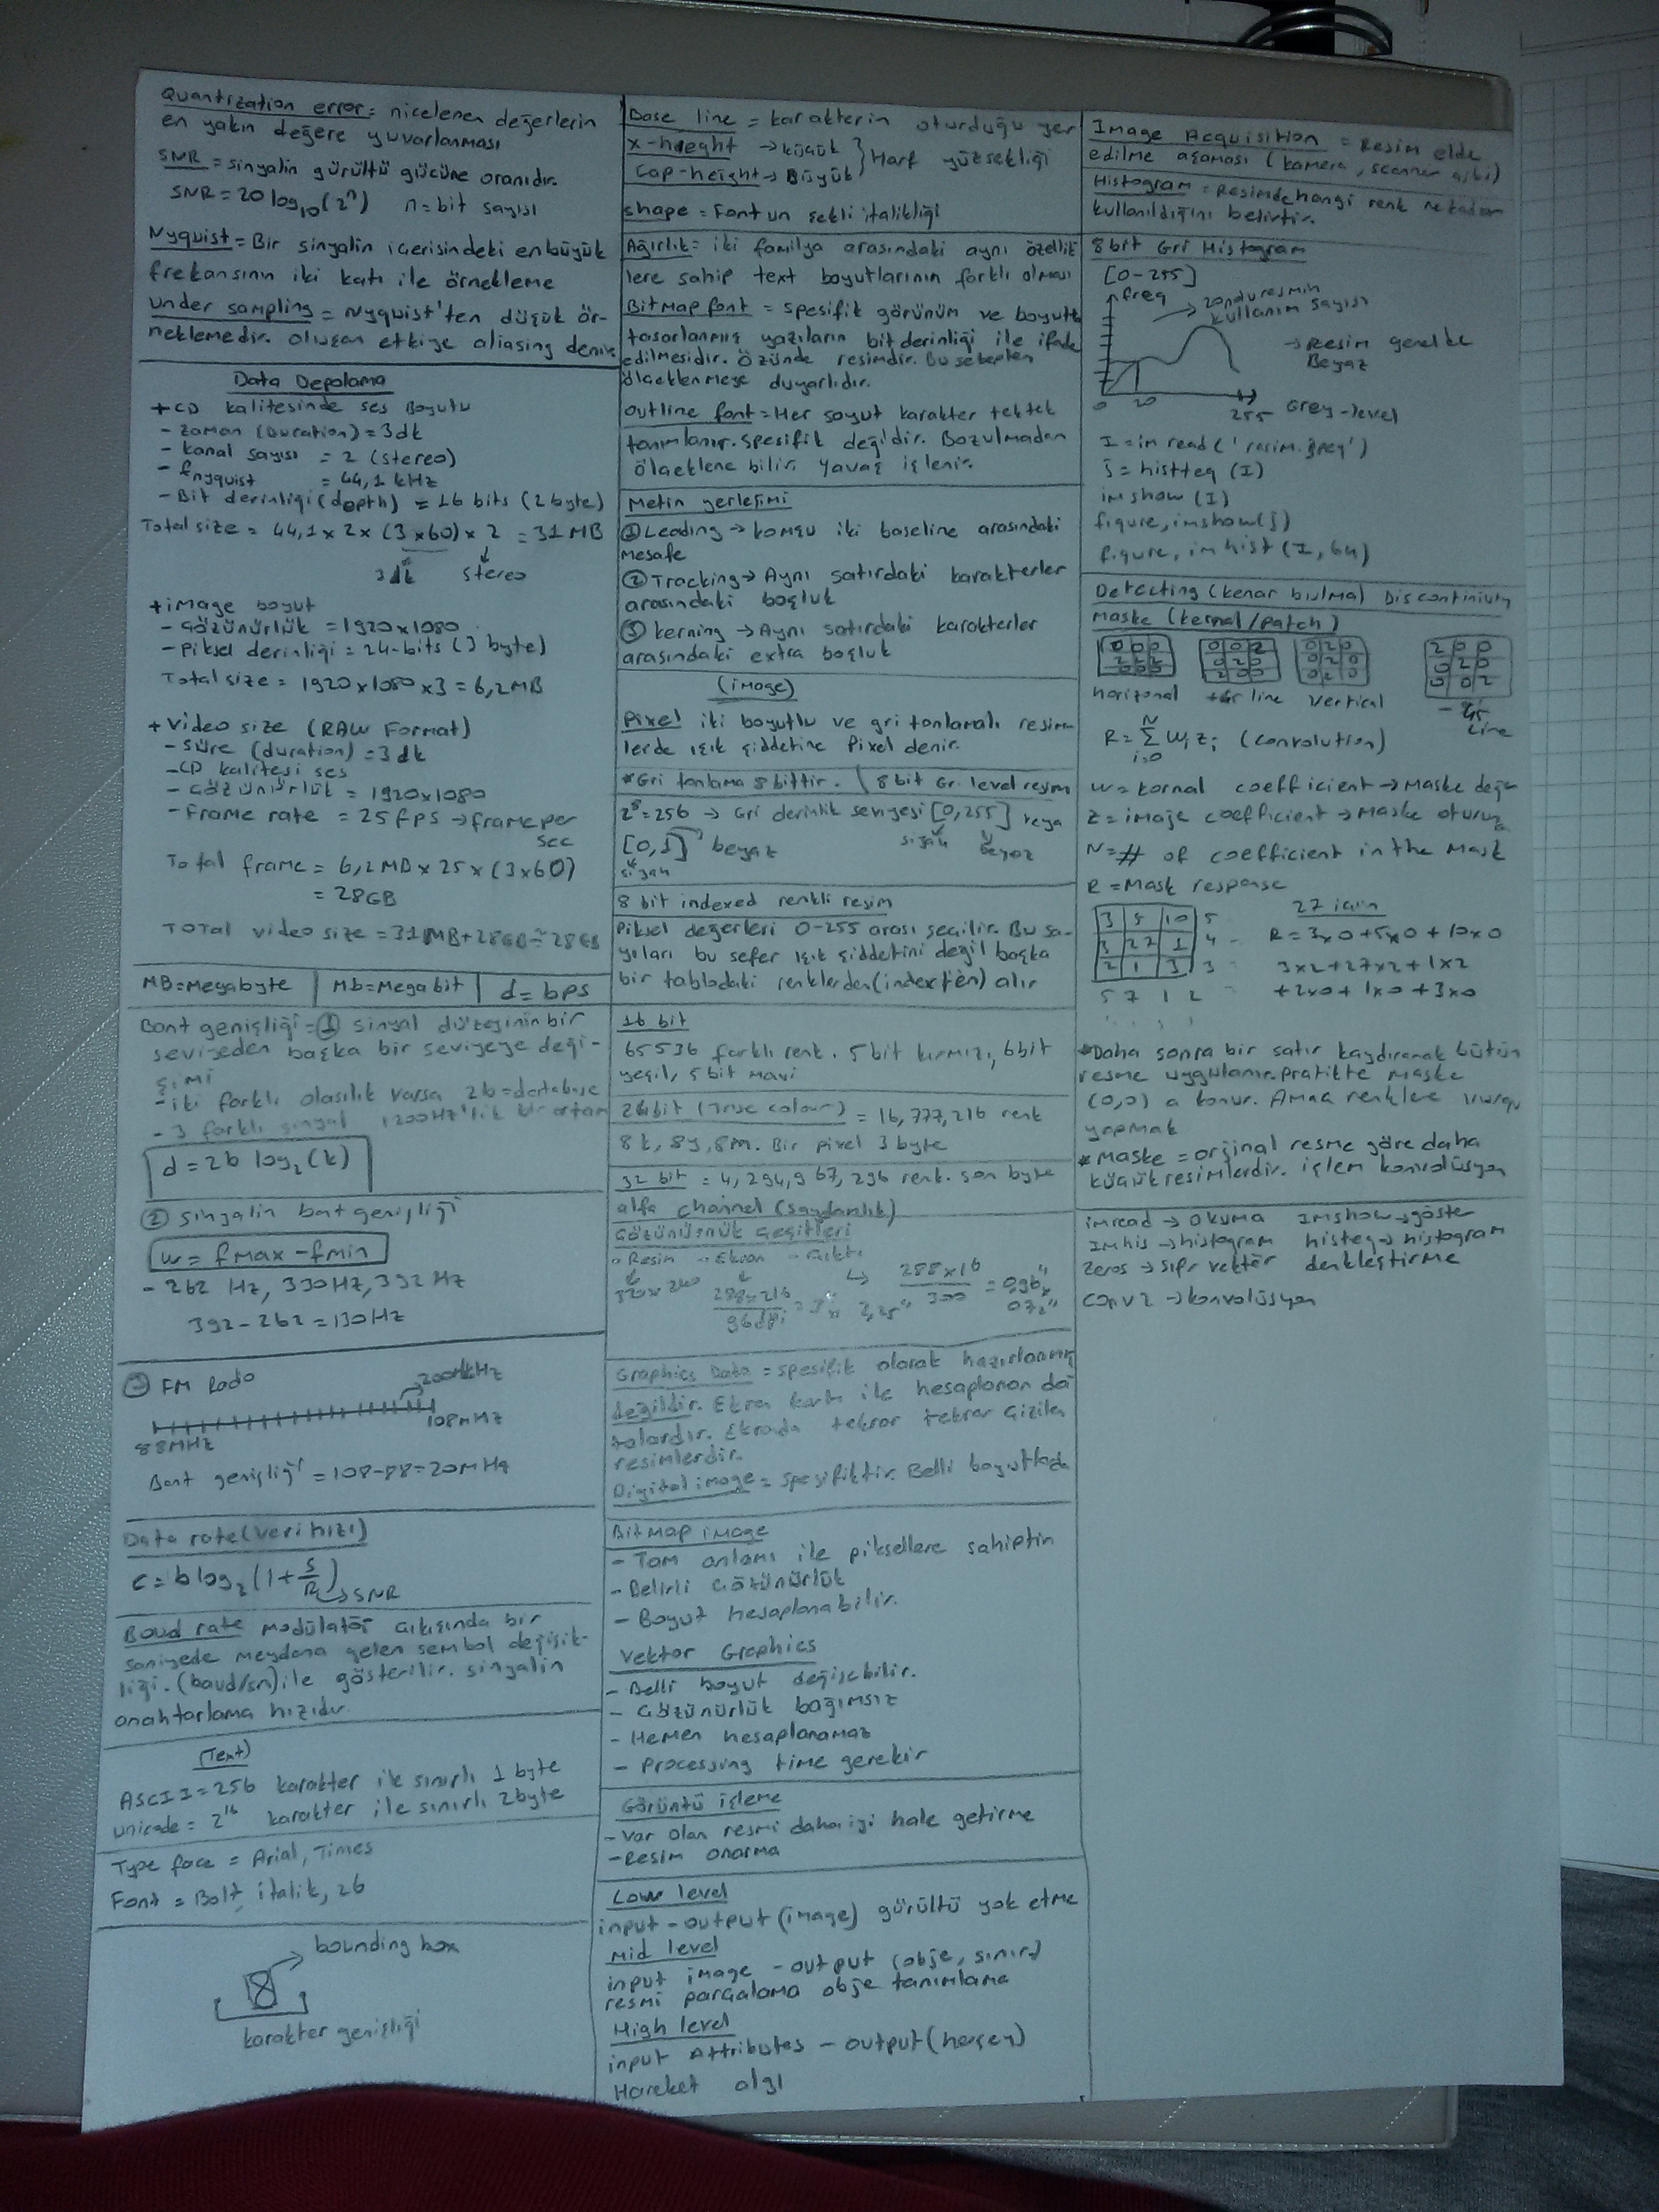 Quantization error = nicelenen değerlerin
en yakın değere yuvarlanması
SNR = sinyalin gürültü gücüne oranıdır.
SNR = 20 log10 (2^n) n = bit sayısı
Nyquist = Bir sinyalin içerisindeki en büyük
frekansının iki katı ile örnekleme
Under sampling = Nyquist'ten düşük ör-
neklemedir. oluşan etkiye aliasing denir
Data Depolama
+ CD kalitesinde ses Boyutu
- zaman (Duration) = 3dk
- kanal sayısı = 2 (stereo)
- fnyquist = 44,1 kHz
- Bit derinliği (depth) = 16 bits (2 byte)
Total size = 44,1 x 2 x (3x60) x 2 = 31 MB
3 dk stereo
+ image boyut
- Gözünürlük = 1920x1080
- Piksel derinliği = 24-bits (3 byte)
Total size = 1920x1080x3 = 6,2MB
+ Video size (RAW Format)
- Süre (duration) = 3 dk
- CD kalitesi ses
- Gözünürlük = 1920x1080
- Frame rate = 25 fps → frame per
sec
Total frame = 6,2MB x 25 x (3x60)
= 28GB
Total video size = 31MB+28GB ≅ 28GB
MB = Megabyte | Mb = Megabit | d = bps
Bant genişliği = ① sinyal düzeyinin bir
seviyeden başka bir seviyeye deği-
şimi
- iki farklı olasılık varsa 2b = database
- 3 farklı sinyal 1200Hz'lik bir ortam
d = 2b log2 (k)
② Sinyalin bant genişliği
w = fmax - fmin
- 262 Hz, 330Hz, 392 Hz
392 - 262 = 130 Hz
③ FM Rado
200 kHz
88MHz 108MHz
Bant genişliği = 108-88 = 20MHz
Data rate (veri hızı)
C = b log2 (1 + S/R) → SNR
Baud rate Modülatör çıkışında bir
saniyede meydana gelen sembol değişik-
liği. (baud/sn) ile gösterilir. sinyalin
anahtarlama hızıdır.
(Text)
ASCII = 256 karakter ile sınırlı 1 byte
Unicode = 2^16 karakter ile sınırlı 2byte
Type face = Arial, Times
Font = Bolt, italik, 26
bounding box
karakter genişliği
Base line = karakterin oturduğu yer
x-height → küçük } Harf yüksekliği
Cap-height → Büyük
shape = Fontun şekli italikliği
Ağırlık = iki familya arasındaki aynı özellik
lere sahip text boyutlarının farklı olması
BitMap font = spesifik görünüm ve boyutta
tasarlanmış yazıların bit derinliği ile ifade
edilmesidir. Özünde resimdir. Bu sebepten
ölçeklenmeye duyarlıdır.
outline font = Her soyut karakter tektek
tanımlanır. spesifik değildir. Bozulmadan
ölçeklene bilir. Yavaş işlenir.
Metin yerleşimi
① Leading → komşu iki baseline arasındaki
mesafe
② Tracking → Aynı satırdaki karakterler
arasındaki boşluk
③ kerning → Aynı satırdaki karakterler
arasındaki extra boşluk
(image)
Pixel iki boyutlu ve gri tonlamalı resim-
lerde ışık şiddetine Pixel denir.
* Gri tonlama 8 bittir. | 8 bit Gr. level resim
2^8 = 256 → Gri derinlik seviyesi [0,255] veya
[0,1] beyaz siyah beyaz
siyah
8 bit indexed renkli resim
Piksel değerleri 0-255 arası seçilir. Bu sa-
yıları bu sefer ışık şiddetini değil başka
bir tablodaki renklerden (indexten) alır
16 bit
65536 farklı renk. 5bit kırmızı, 6bit
yeşil, 5 bit mavi
24bit (True colour) = 16,777,216 renk
8k, 8y, 8m. Bir pixel 3 byte
32 bit = 4,294,967,296 renk. son byte
alfa channel (saydamlık)
Gözünürnük Çeşitleri
Resim - Ekran - Çıktı
320x240 288x216/96dpi = 3" x 2,25" 288x16/300 = 0,96" x
0,72"
Graphics Data = spesifik olarak hazırlanmış
değildir. Ekran kartı ile hesaplanan da
talardır. Ekranda tekrar tekrar çizilen
resimlerdir.
Digital image = spesifiktir. Belli boyuttada
BitMap image
- Tam anlamı ile piksellere sahiptin
- Belirli Gözünürlük
- Boyut hesaplanabilir.
Vektor Graphics
- Belli boyut değişebilir.
- Gözünürlük bağımsız
- Hemen hesaplanamaz
- Processing time gerekir
Görüntü işleme
- Var olan resmi daha iyi hale getirme
- Resim onarma
Low level
input - output (image) gürültü yok etme
Mid level
input image - output (obje, sınır)
resmi parçalama obje tanımlama
High level
input Attributes - output (herşey)
Hareket algı
Image Acquisition = Resim elde
edilme aşaması (kamera, scanner gibi)
Histogram = Resimde hangi renk ne kadar
kullanıldığını belirtir.
8 bit Gri Histogram
[0-255]
freq
kullanım sayısı
→ Resim genelde
Beyaz
0 20 255 Grey-level
I = imread ('resim.jpeg')
j = histteq (I)
imshow (I)
figure, imshow(j)
figure, imhist (I, 64)
Detecting (kenar bulma) Discontinuity
Maske (kernel/patch)
0 0 0 0 0 2 0 2 0 2 0 0
2 2 2 0 2 0 0 2 0 0 2 0
0 0 0 2 0 0 0 2 0 0 0 2
Horizonal +45 line Vertical -45
line
R = Σ WiZi (convolution)
w = kornal coefficient → Maske değe
z = imaje coefficient → Maske oturun
N = # of coefficient in the Mask
R = Mask response
3 5 10 5 27 için
3 27 1 4 R = 3x0 + 5x0 + 10x0
2 1 3 3 3x2 + 27x2 + 1x2
5 7 1 2 + 2x0 + 1x0 + 3x0
* Daha sonra bir satır kaydırarak bütün
resme uygulanır. Pratikte Maske
(0,0) a konur. Amaç renklere vurgu
yapmak
* Maske = orjinal resme göre daha
küçük resimlerdir. işlem konvolüsyon
imread → okuma IMshow → göster
IMhis → histogram histeq → histogram
zeros → sıfır vektör denkleştirme
conv2 → konvolüsyon